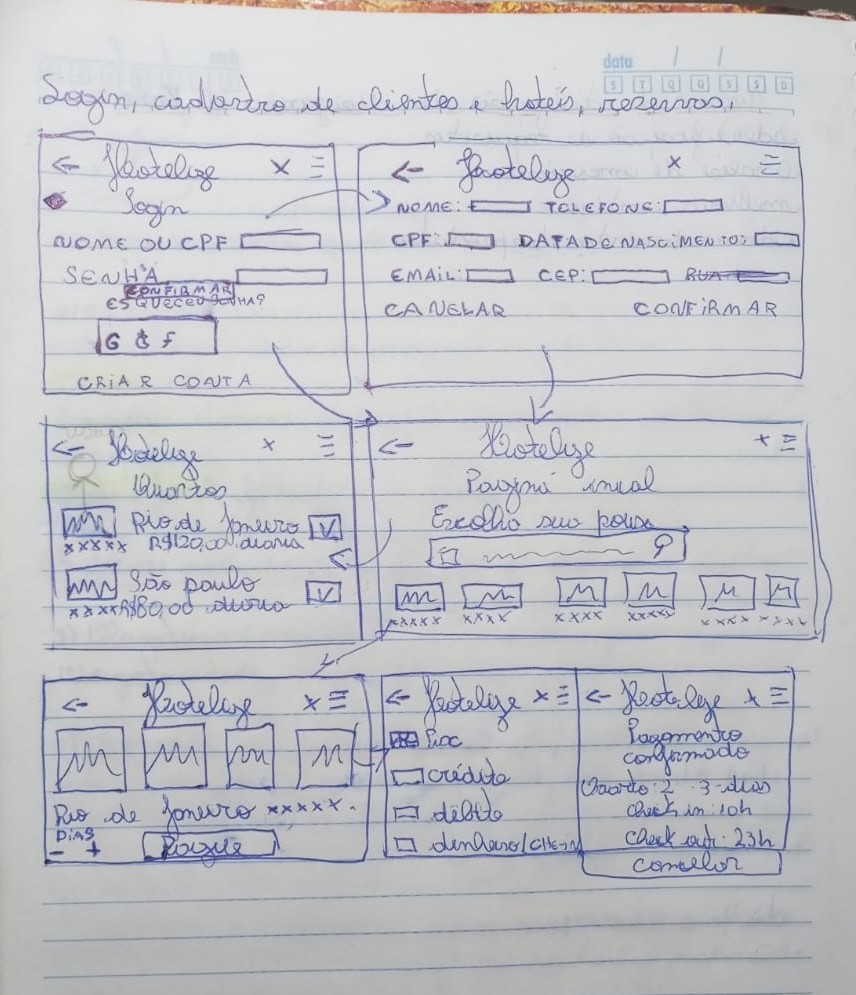 data / /
S T Q Q S S D
Login, cadastro de clientes e hotéis, reservas.
← Hotelize X ☰
Login
NOME OU CPF
SENHA
CONFIRMAR
ESQUECEU SENHA?
G & F
CRIAR CONTA
← Hotelize X ☰
NOME: TELEFONE:
CPF: DATA DE NASCIMENTO:
EMAIL: CEP: RUA
CANELAR CONFIRMAR
← Hotelize x ☰
Quartos
Rio de Janeiro V
xxxxx R$120,00 diaria
São paulo V
xxxx R$80,00 diaria
← Hotelize x ☰
Pagina inicial
Escolha sua pousa
xxxxx xxxx xxxx xxxx xxxx xxxx
← Hotelize x ☰
Rio de Janeiro xxxxx.
DIAS
- + Pague
← Hotelize x ☰
Pix
crédito
débito
dinheiro/CHE-IN
← Hotelize x ☰
Pagamento
confirmado
Quarto: 2 3-dias
check in: 10h
check out: 23h
cancelar